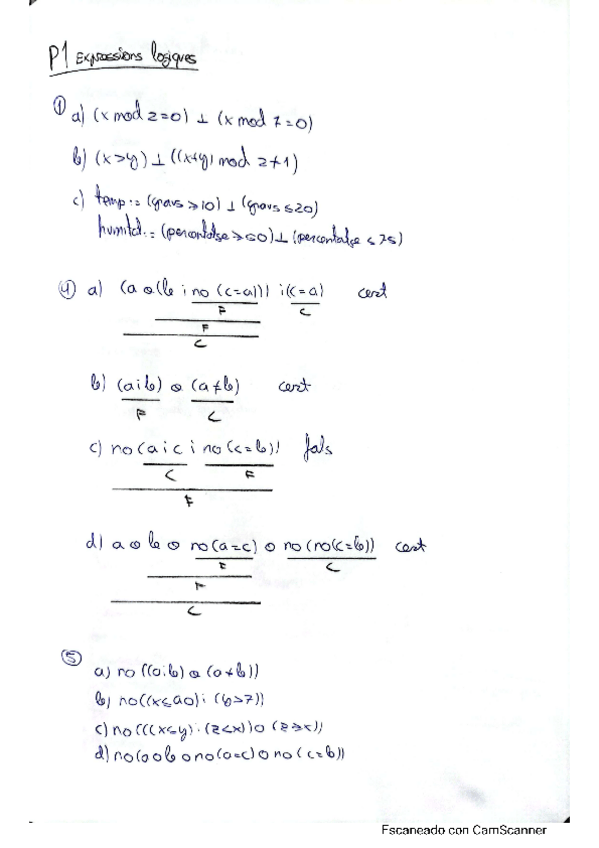 P1 Expressions logiques
① a) (x mod 2=0) ⊥ (x mod 7=0)
b) (x>y) ⊥ ((x+y) mod 2≠1)
c) temp:= (graus ≥10) ⊥ (graus ≤20)
humitat:= (percentatge ≥60) ⊥ (percentatge ≤75)
④ a) (a o (b i no (c=a))) i (c=a) cert
F C
F
C
b) (a i b) o (a≠b) cert
F C
c) no (a i c i no (c=b)) fals
C F
F
d) a o b o no(a=c) o no(no(c=b)) cert
F C
F
C
⑤
a) no ((a i b) o (a≠b))
b) no((x≤a o) i (b>7))
c) no(((x≤y) i (z<x)) o (z≥x))
d) no(a o b o no(a=c) o no(c=b))
Escaneado con CamScanner